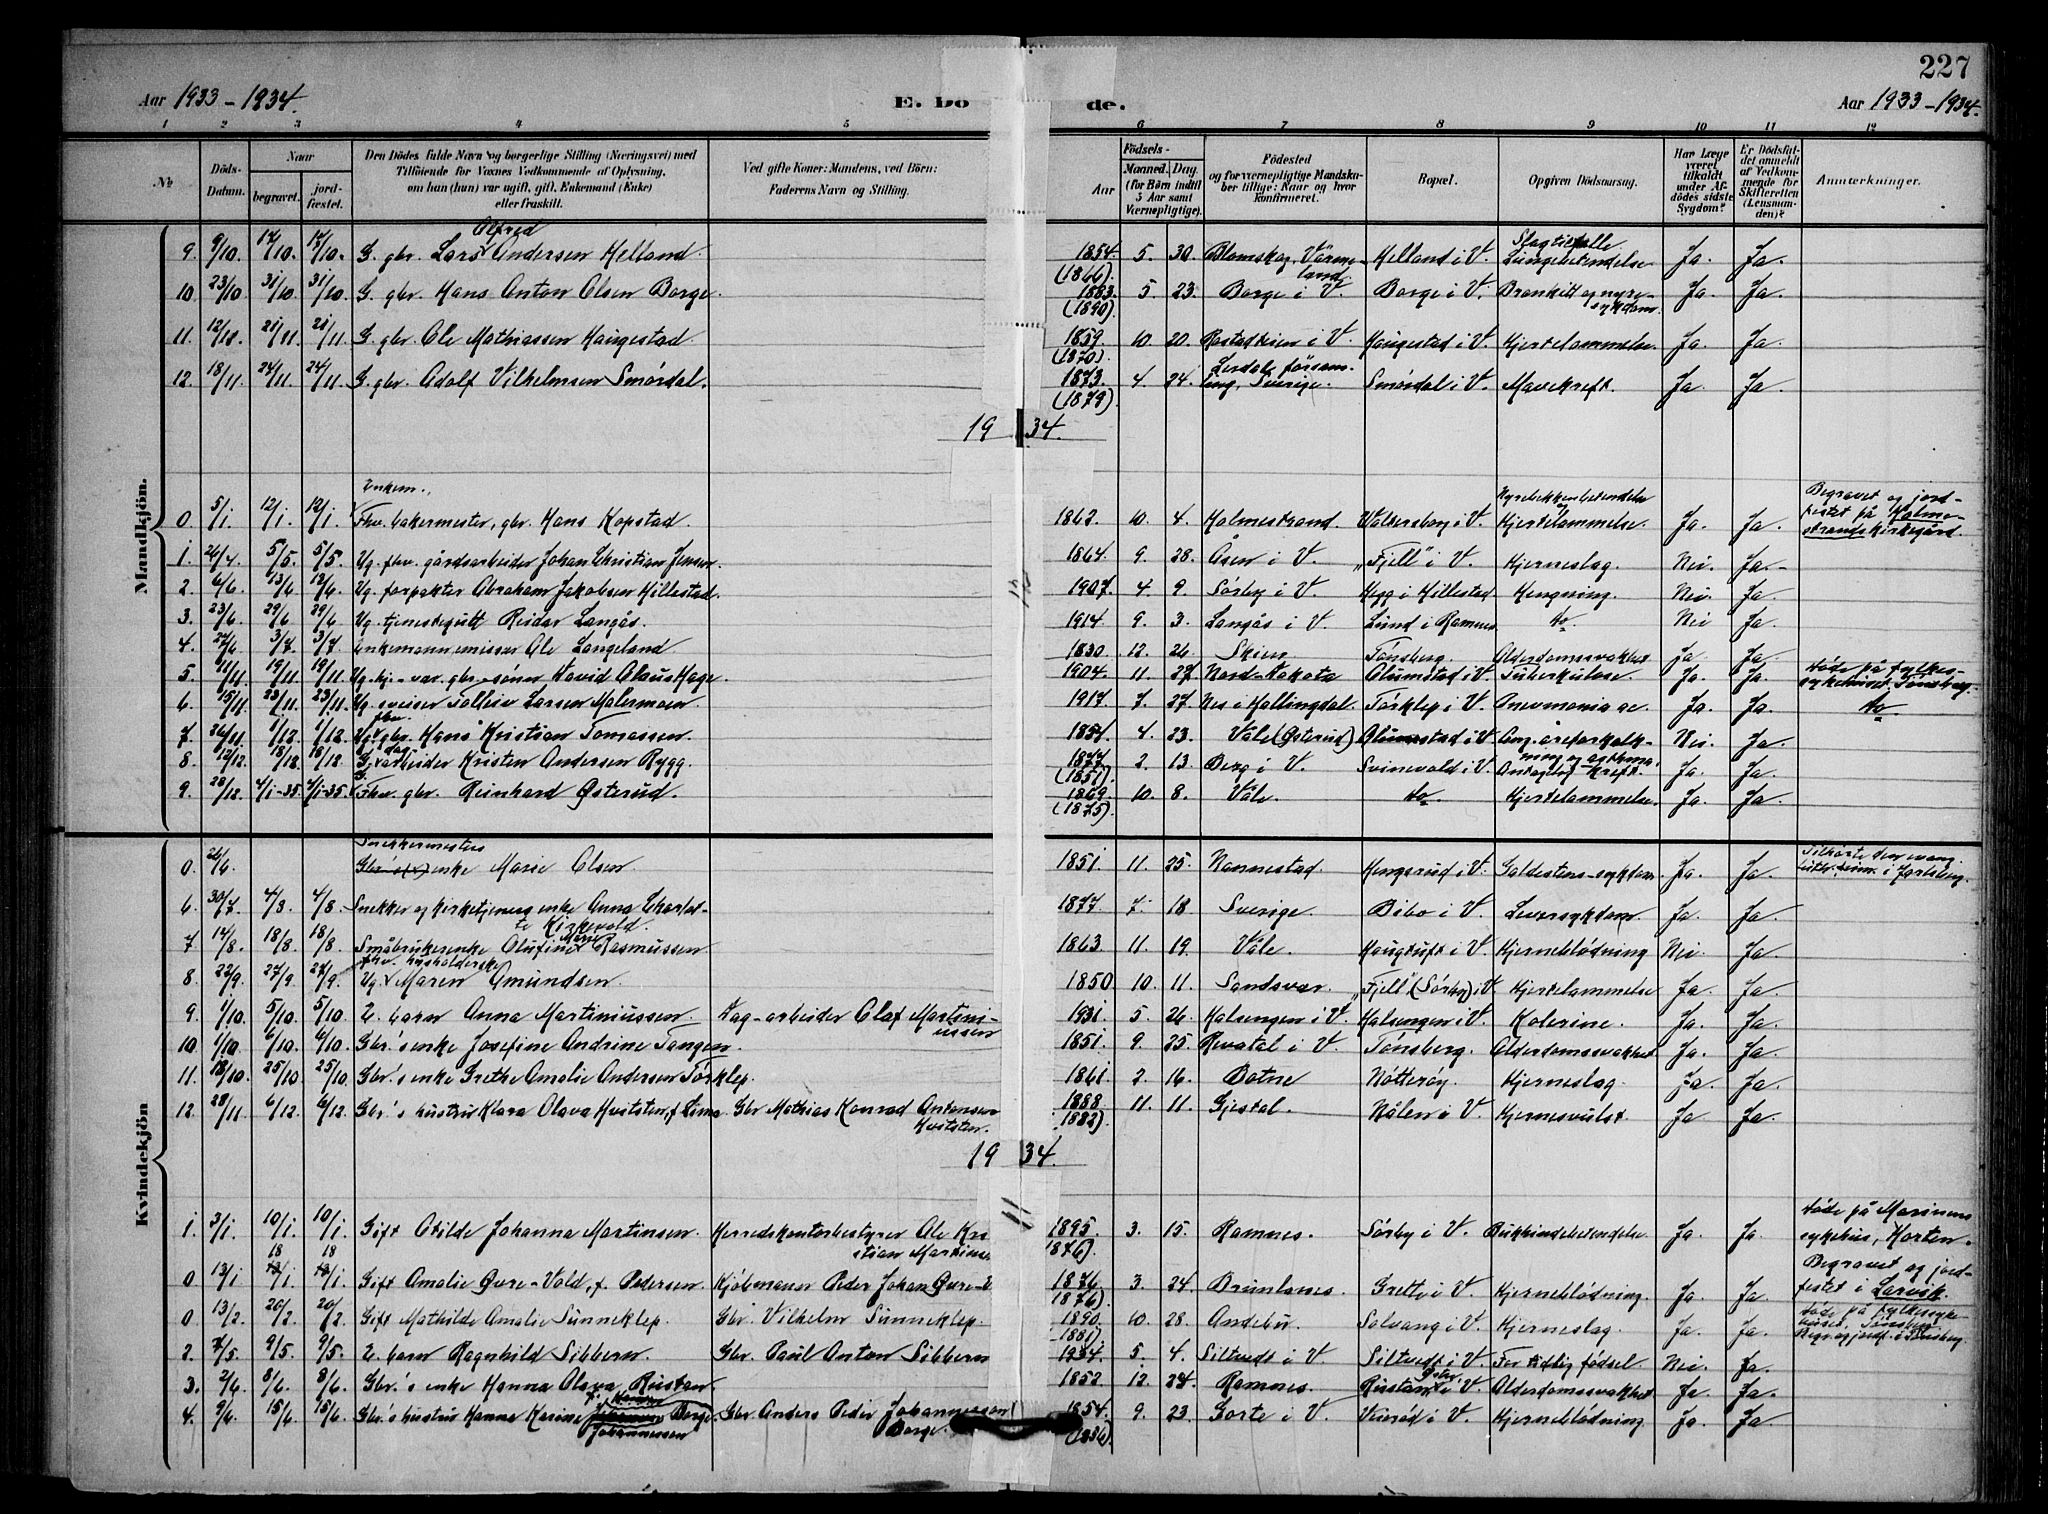 227
Aar 1933-1934. E. Dö de. Aar 1933-1934.
1 2 3 4 5 6 7 8 9 10 11 12
№ Döds-Datum. Naar begravet. jordfæstet. Den Dödes fulde Navn og borgerlige Stilling (Næringsvei) med Tilföiende for Voxnes Vedkommende af Oplysning, om han (hun) var ugift, gift, Enkemand (Enke) eller fraskilt. Ved gifte Koner: Mandens, ved Börn: Faderens Navn og Stilling. Födsels- Aar Maaned. Dag. (for Börn indtil 5 Aar samt Værnepligtige). Födested og for værnepligtige Mandskaber tillige: Naar og hvor konfirmeret. Bopæl. Opgiven Dödsaarsag. Har Læge været tilkaldt under Afdödes sidste Sygdom? Er Dödsfaldet anmeldt af Vedkommende for Skifteretten (Lensmanden)? Anmærkninger.
Mandkjön.
9. 9/10. 14/10. 14/10. G. gbr. Lars Alfred Andersen Helland. 1854. (1866) 5. 30. Blomskog, Värmeland Helland i V. Slagtilfälle Lungebetendelse Ja. Ja.
10. 23/10. 31/10. 31/10. G. gbr. Hans Anton Olsen Borge. 1883. (1890). 5. 23. Borge i V. Borge i V. Bronkitt og nyresykdom. Ja. Ja.
11. 12/11. 21/11. 21/11. G. gbr. Ole Mathiassen Haugestad. 1859 (1870). 10. 20. Rastadteien i V. Haugestad i V. Hjertelammelse. Ja. Ja.
12. 18/11. 24/11. 24/11. G. gbr. Adolf Vilhelmsen Smørdal. 1873. (1879) 4. 24. Lerdals församling, Sverige. Smørdal i V. Mavekreft. Ja Ja
1934.
0 5/1. 12/1. 12/1. Enkem., Fhv. bakermester, gbr. Hans Kopstad. 1862. 10. 4. Holmestrand. Valbersborg i V. Nyrebekkenbetendelse og Hjertelammelse. Ja. Ja. Begravet og jordfestet på Holmestrands kirkegård.
1. 26/4. 5/5. 5/5. Ug. fhv. gårdsarbeider Johan Christian Jensen. 1864. 9. 28. Åsen i V. "Fjell" i V. Hjerneslag. Nei. Ja.
2. 6/6. 13/6 13/6. Ug. forpakter Abraham Jakobsen Hillestad. 1907. 4. 9. Sørby i V. Hegg i Hillestad Hengning. Nei. Ja
3. 23/6. 29/6 29/6 Ug. tjenestegutt Reidar Langås. 1914. 9. 3. Langås i V. Lund i Ramnes do. Nei Ja.
4. 27/6 3/7. 3/7. Enkemann, emissær Ole Langeland. 1830. 12. 26. Skien. Tønsberg. Alderdomssvakhet Ja Ja.
5. 11/11. 19/11. 19/11. Ug. hj.-var. gbr.-sønn David Olaus Hage. 1904. 11. 27. Nord-Dakota Olumstad i V. Tuberkulose. Ja. Ja. Døde på fylkessykehuset, Tønsberg.
6. 15/11. 23/11. 23/11. Ug. sveiser Tolleiv Larsen Molermoen 1917. 7. 27. Nes i Hallingdal. Tørklep i V. Pneumonia ac. Ja. Ja. do
7. 26/11. 1/12. 1/12. Ug. fhv. gbr. Hans Kristian Tomassen. 1854. 4. 23. Våle (Østerud) Olumstad i V. Ang. åreforkalkning og astma. Nei. Ja.
8. 12/12. 18/12. 18/12. G. dagarbeider Kristen Andersen Rygg. 1877 (1851) 2. 13. Berg i V. Svinevold i V. Antagelig kreft. Ja. Ja
9. 28/12. 4/1-35. 4/1-35. G. Fhv. gbr. Reinhard Østerud. 1869. (1875). 10. 8. Våle. do. Hjertelammelse. Ja. Ja.
Kvindekjön
0. 26/6. Snekkermesters Gbr.'s enke Marie Olsen. 1851. 11. 25. Nannestad. Hengsrud i V. Galdestens-sykdom Ja. Ja. Tilhørte den evang. luther. frim. i Jarlsberg.
6. 30/7. 4/8. 4/8. Snekker og kirketjeners enke Anna Charlotte Kirkevold. 1877. 7. 18 Sverige. Bibo i V. Leversykdom. Ja. Ja.
7 14/8. 18/8. 18/8. Småbrukerenke Olufine Marie Rasmussen 1863 11. 19. Våle. Haugtuft i V. Hjerneblødning Nei. Ja.
8. 22/9. 27/9. 27/9. fhv. husholderske Ug. Maren Amundsen. 1850 10. 11. Sandsvær. "Fjell" (Sørby) i V Hjertelammelse Ja. Ja.
9. 1/10. 5/10. 5/10. U. barn Anna Martiniussen. Dag-arbeider Olaf Martiniussen 1931. 5. 26. Holsengen i V. Holsengen i V. Kolerine. Ja. Ja.
10. 1/10. 6/10. 6/10. Gbr.'s enke Josefine Andrine Tangen. 1851. 9. 25. Revatal i V. Tønsberg. Alderdomssvakhet. Ja. Ja.
11. 18/10. 25/10. 25/10. Gbr.'s enke Grethe Amalie Andersen Tørklep. 1861. 2. 16. Botne Nøtterøy. Hjerneslag. Ja. Ja.
12. 28/11. 6/12. 6/12. Gbr.'s hustru Klara Olava Hvitsten, f. Lima Gbr. Mathias Konrad Antonsen Hvitsten. 1888. 1882). 11. 11. Gjestal. Nålen i V. Hjernesvulst. Ja Ja
1934.
1. 3/1. 10/1. 10/1. Gift Otilde Johanna Martinsen. Herredskontorbestyrer Ole Kristian Martinse 1895. 1876). 3. 15. Ramnes. Sørby i V. Bukhindebetendelse. Ja Ja. Døde på Marinens sykehus, Horten.
0. 13/1. 18/1. 18/1. Gift Amalie Øvre-Vold, f. Pedersen. Kjøbmann Peder Johan Øvre- 1876 1876). 3. 24. Brunlanes. Grette i V. Hjerneblødning. Ja. Ja. Begravet og jordfestet i Larvik.
0 13/2. 20/2. 20/2. Gift Mathilde Amalie Sunneklep. Gbr. Vilhelm Sunneklep. 1890. 1881) 10. 28. Andebu. Solvang i V. Hjerneslag. Ja. Ja. Døde på fylkessykehuset, Tønsberg. Begr. og jordf. i Tønsberg
2. 7/5. 9/5. 9/5. U. barn Ragnhild Sibbern. Gbr. Paul Anton Sibbern 1934. 5. 4. Siltvedt i V. Siltvedt i V. For tidlig fødsel. Nei. Ja.
3. 2/6. 8/6. 8/6. Gbr.'s enke Hanna Olava Rustan. 1852. 12. 24. Ramnes. Rustan i V. Alderdomssvakhet. Ja. Ja.
4. 9/6. 15/6. 15/6. Gbr.'s hustru Hanna Karine Borge Johannessen Gbr. Anders Peder Johannessen Borge. 1854. (1856) 9. 23. Gorte i V. Vivestad i V. Hjerneblødning. Ja. Ja